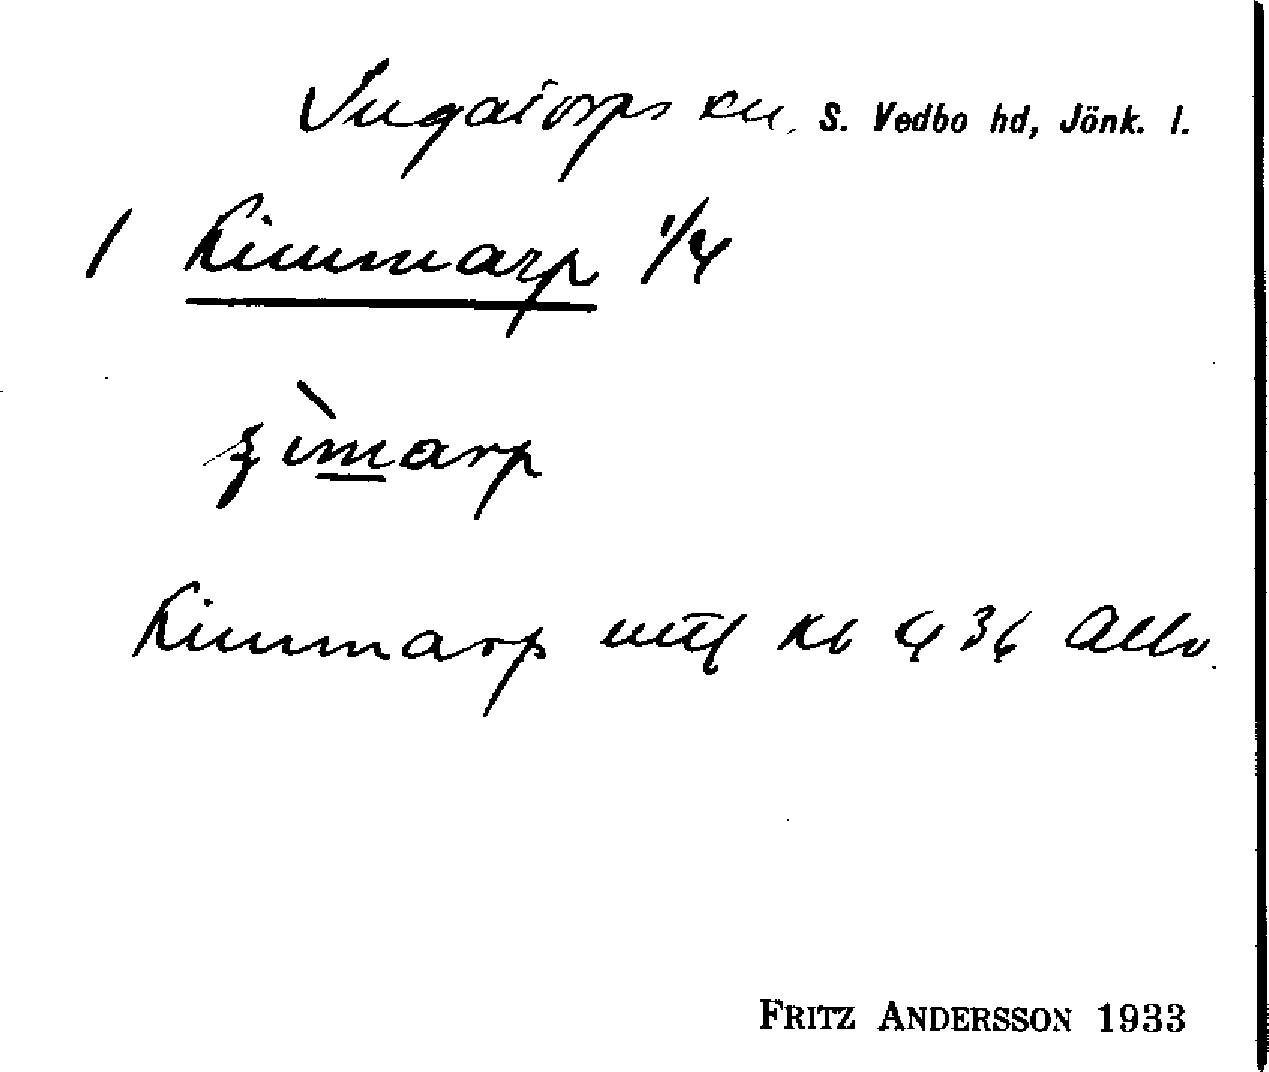 Ingatorps sn. S. Vedbo hd, Jönk. l.
1 Kimmarp 1/4
Kimmarp mtl Kb 4 36 Allv.
FRITZ ANDERSSON 1933